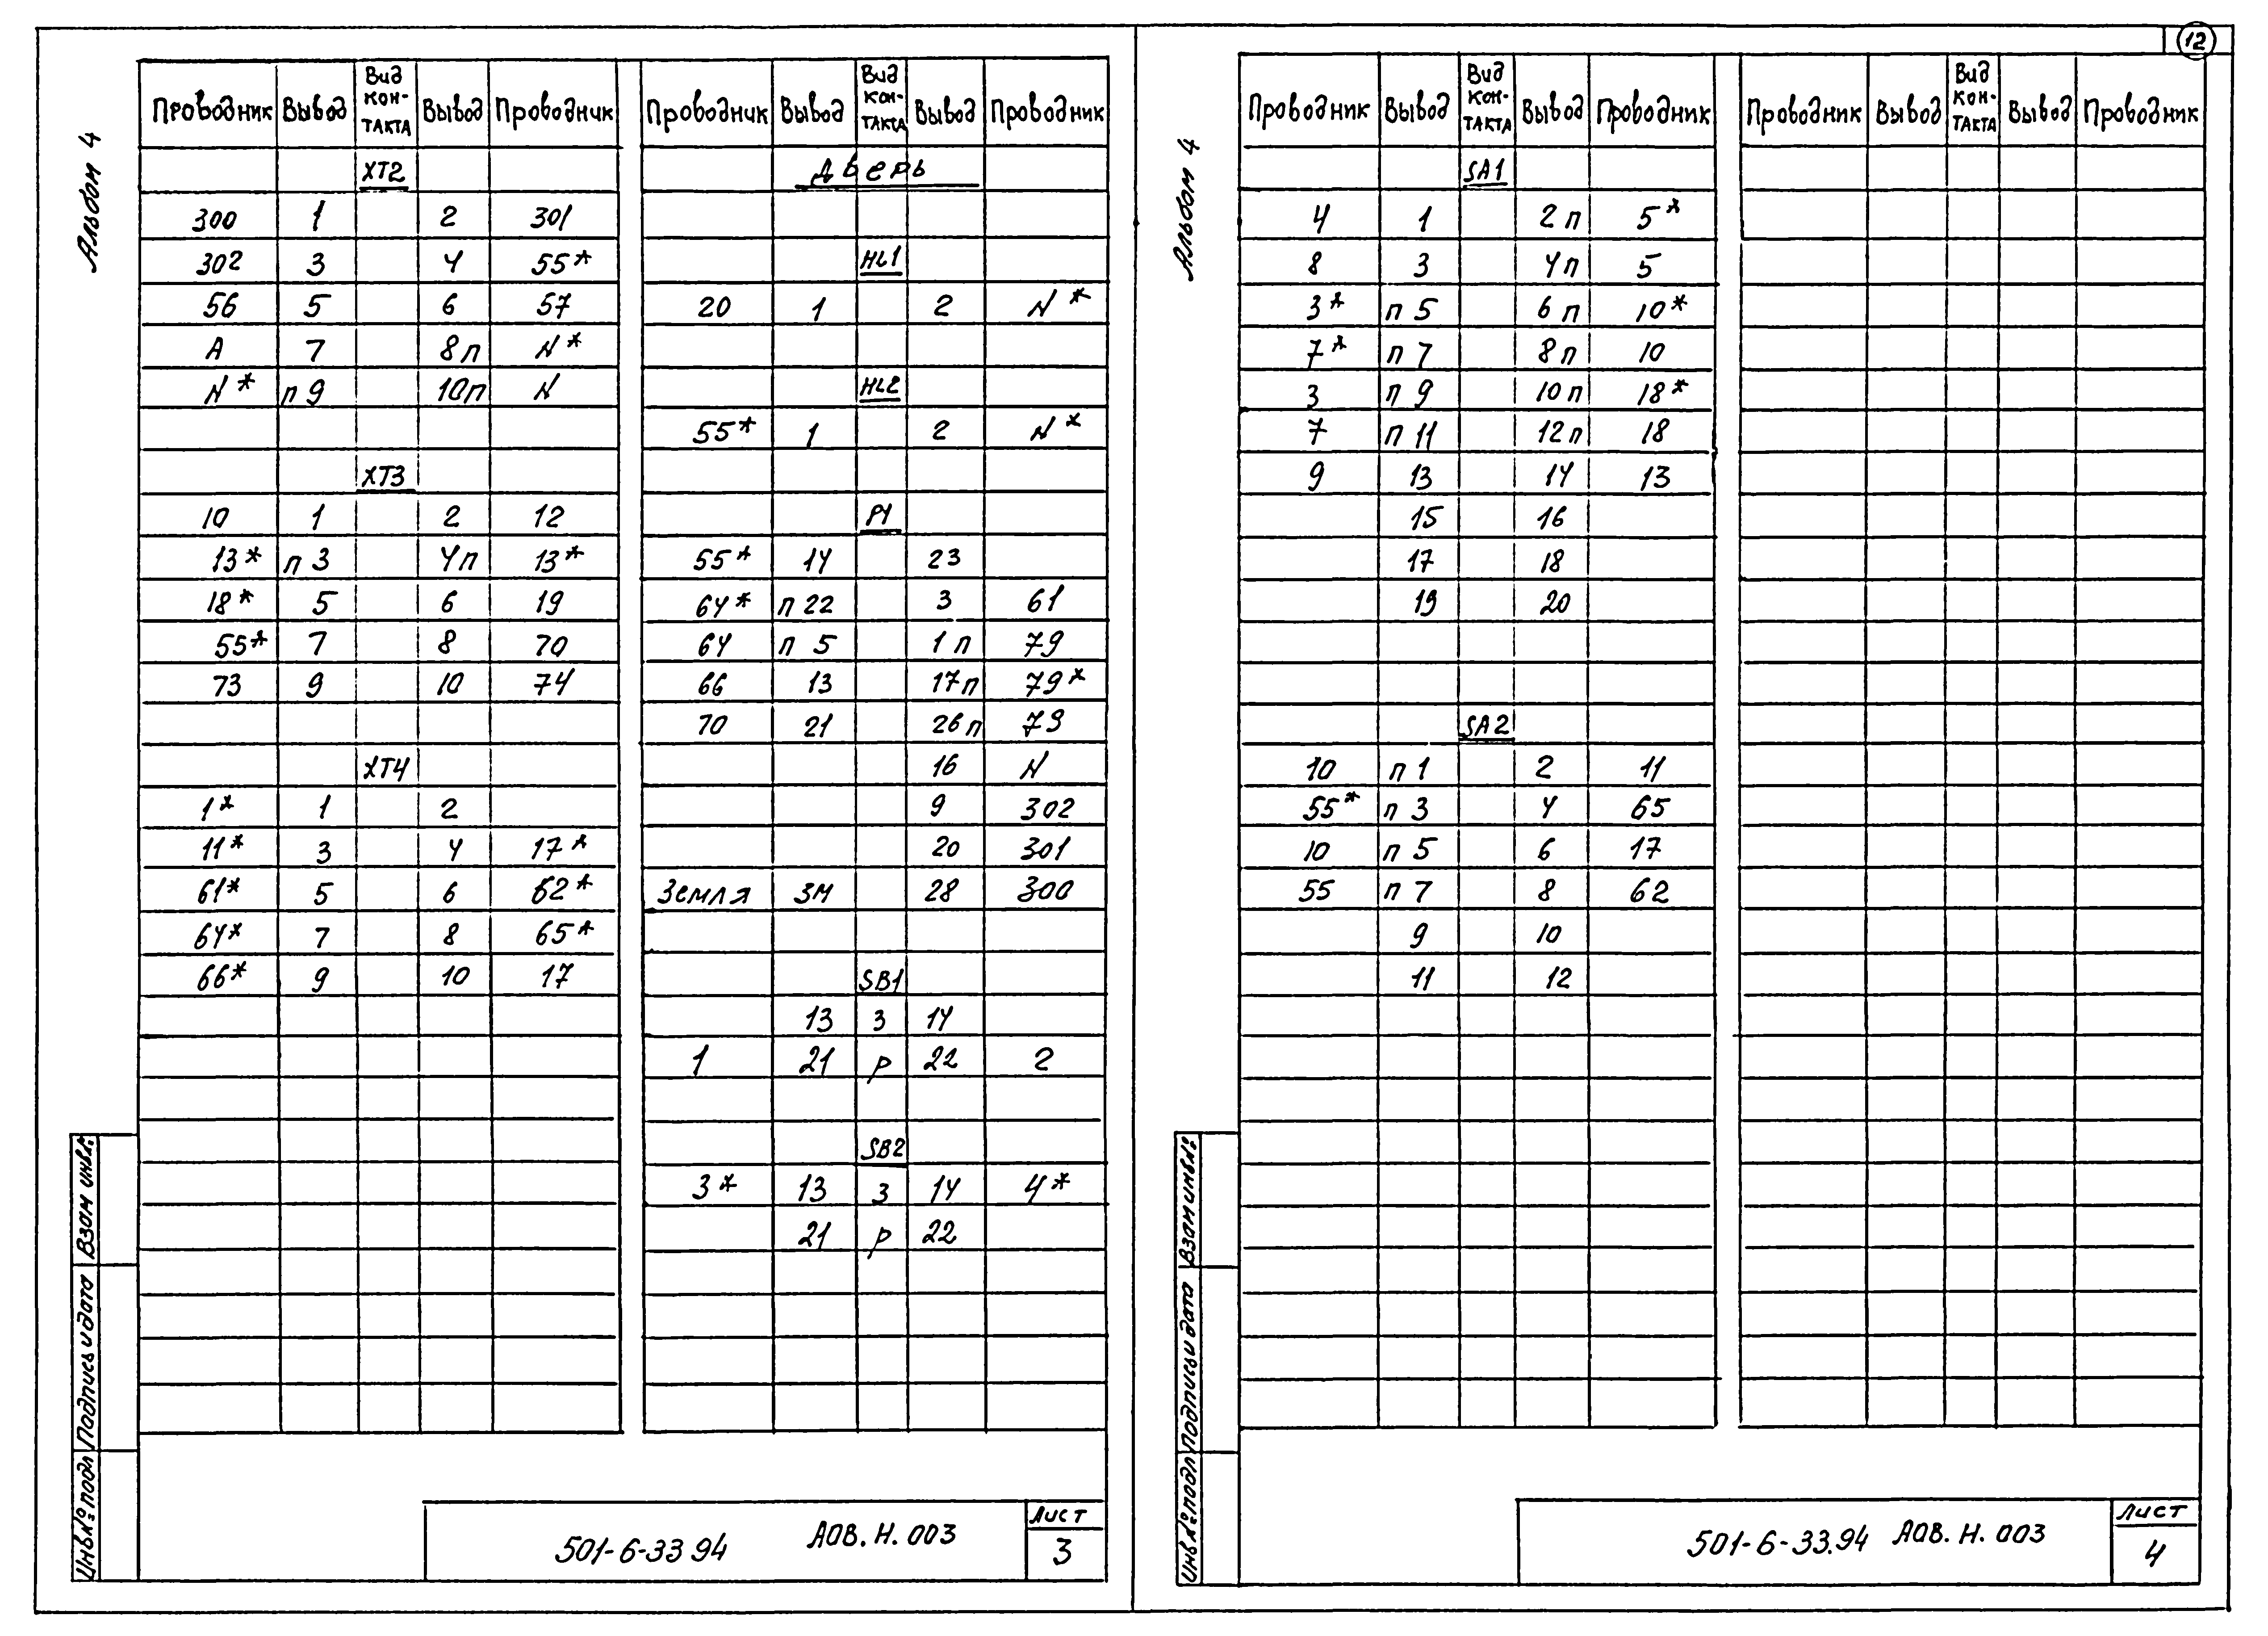 12
Альбом 4
Проводник Вывод Вид кон-такта Вывод Проводник
XT2
300 1 2 301
302 3 4 55*
56 5 6 57
А 7 8п N*
N* п9 10п N
XT3
10 1 2 12
13* п3 4п 13*
18* 5 6 19
55* 7 8 70
73 9 10 74
XT4
1* 1 2
11* 3 4 17*
61* 5 6 62*
64* 7 8 65*
66* 9 10 17
Проводник Вывод Вид кон-такта Вывод Проводник
Дверь
HL1
20 1 2 N*
HL2
55* 1 2 N*
P1
55* 14 23
64* п22 3 61
64 п 5 1п 79
66 13 17п 79*
70 21 26п 79
16 N
9 302
20 301
Земля ЗМ 28 300
SB1
13 З 14
1 21 Р 22 2
SB2
3* 13 З 14 4*
21 Р 22
Инв.№ подл Подпись и дата Взам инв.№
501-6-33 94 АОВ. Н. 003
Лист
3
Альбом 4
Проводник Вывод Вид кон-такта Вывод Проводник
SA1
4 1 2п 5*
8 3 4п 5
3* п 5 6п 10*
7* п 7 8п 10
3 п 9 10п 18*
7 п 11 12п 18
9 13 14 13
15 16
17 18
19 20
SA2
10 п1 2 11
55* п 3 4 65
10 п 5 6 17
55 п 7 8 62
9 10
11 12
Проводник Вывод Вид кон-такта Вывод Проводник
Инв.№ подл Подпись и дата Взам инв.№
501-6-33.94 АОВ. Н. 003
Лист
4